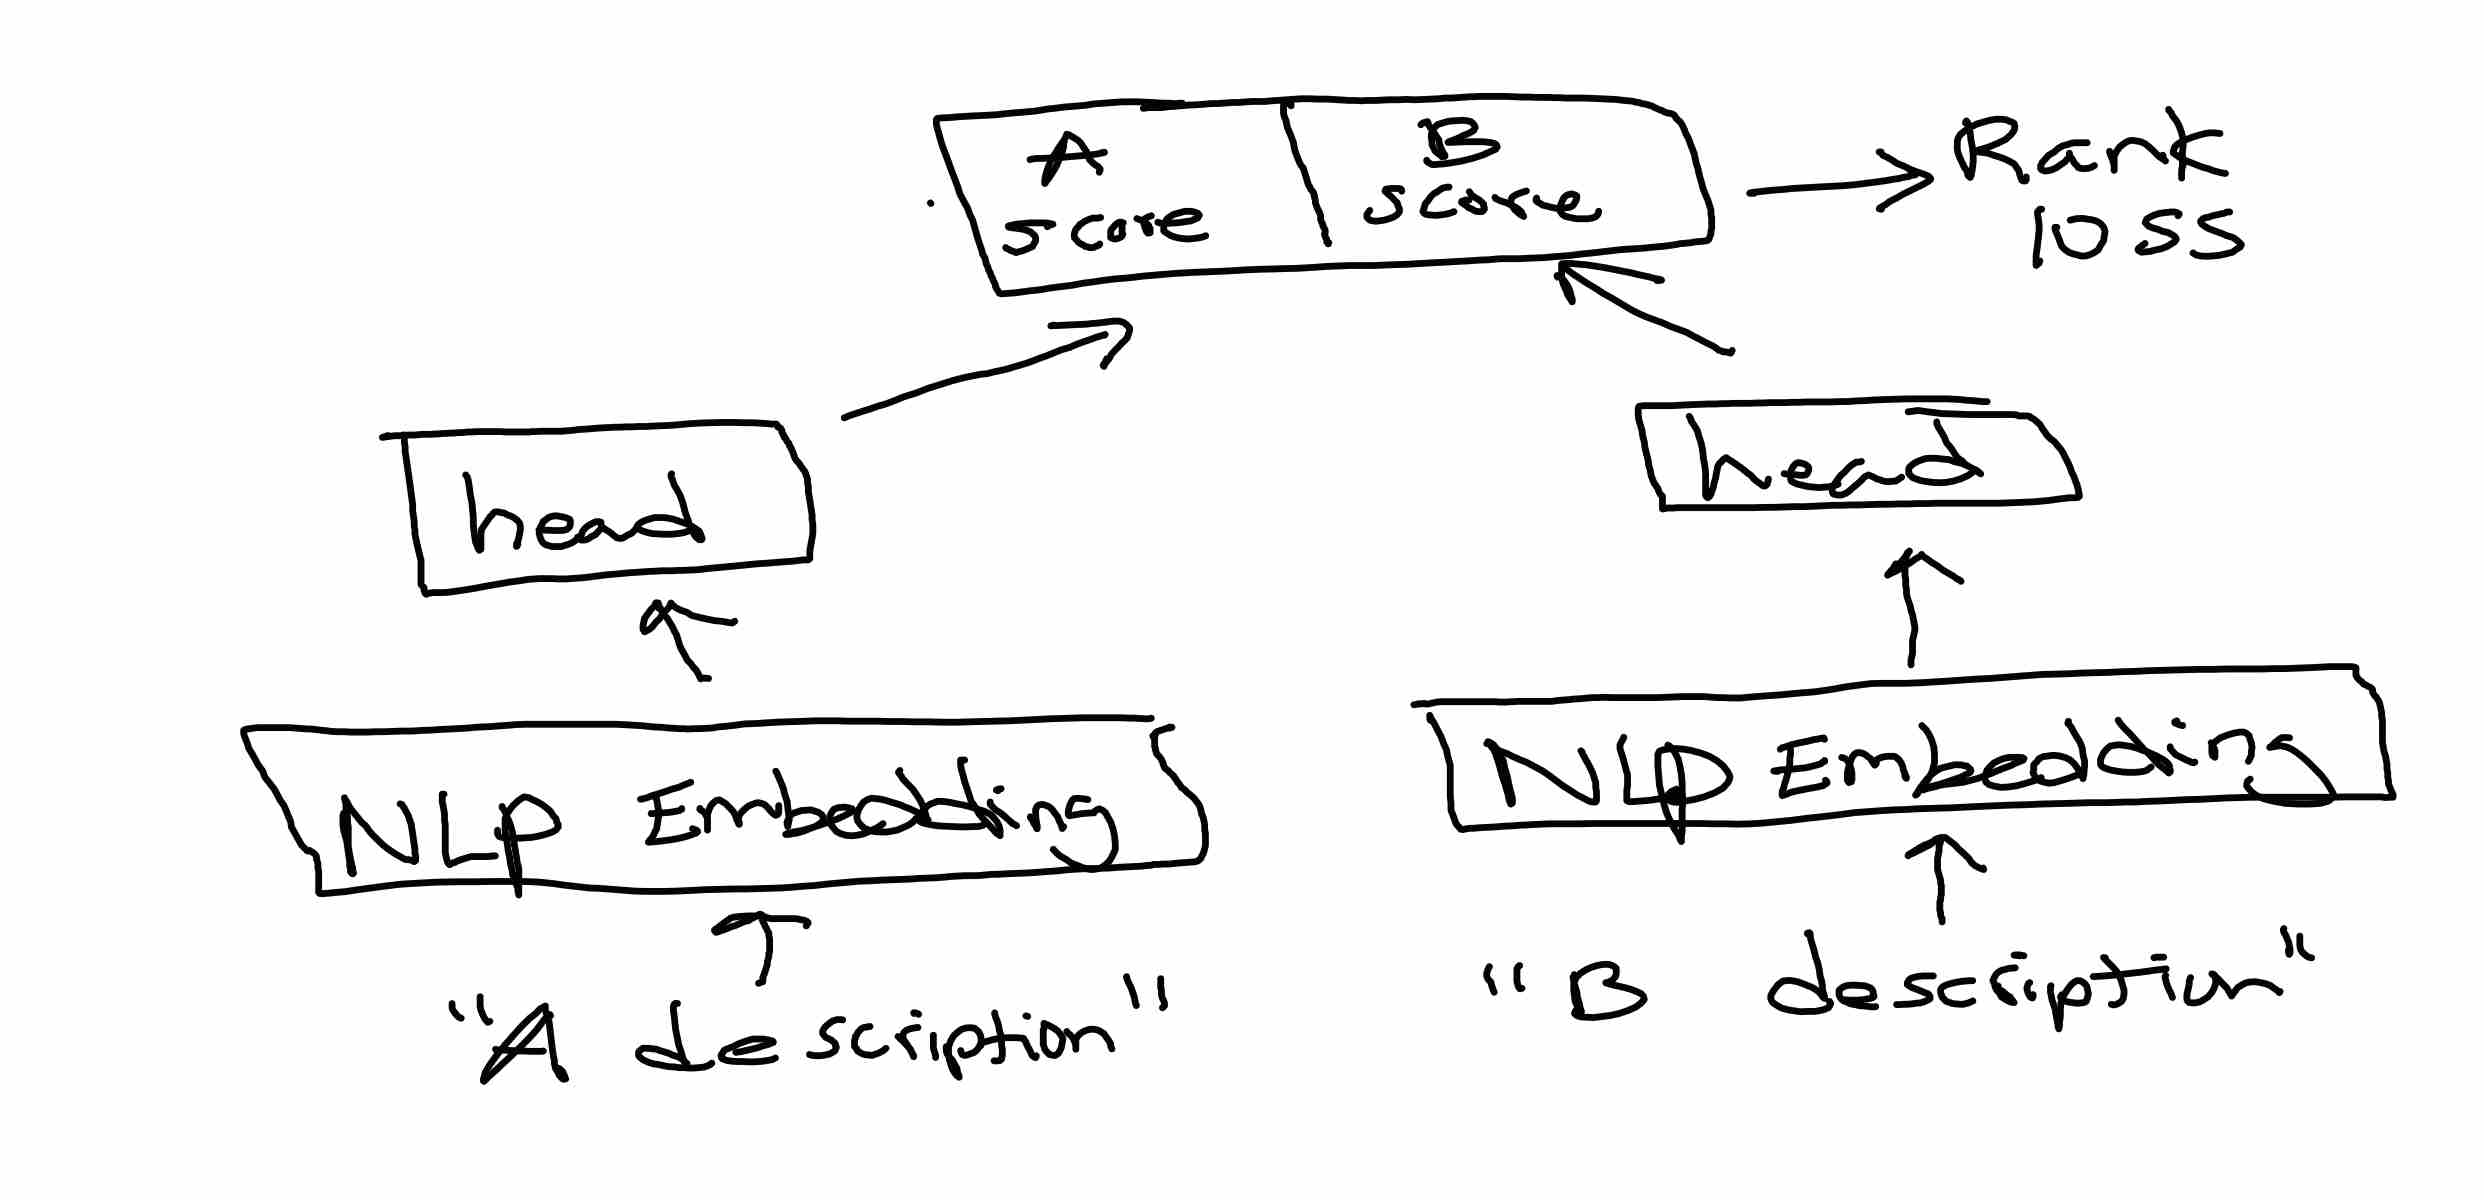 A
score
B
score
Rank
loss
head
head
NLP Embedding
NLP Embedding
"A description"
"B description"